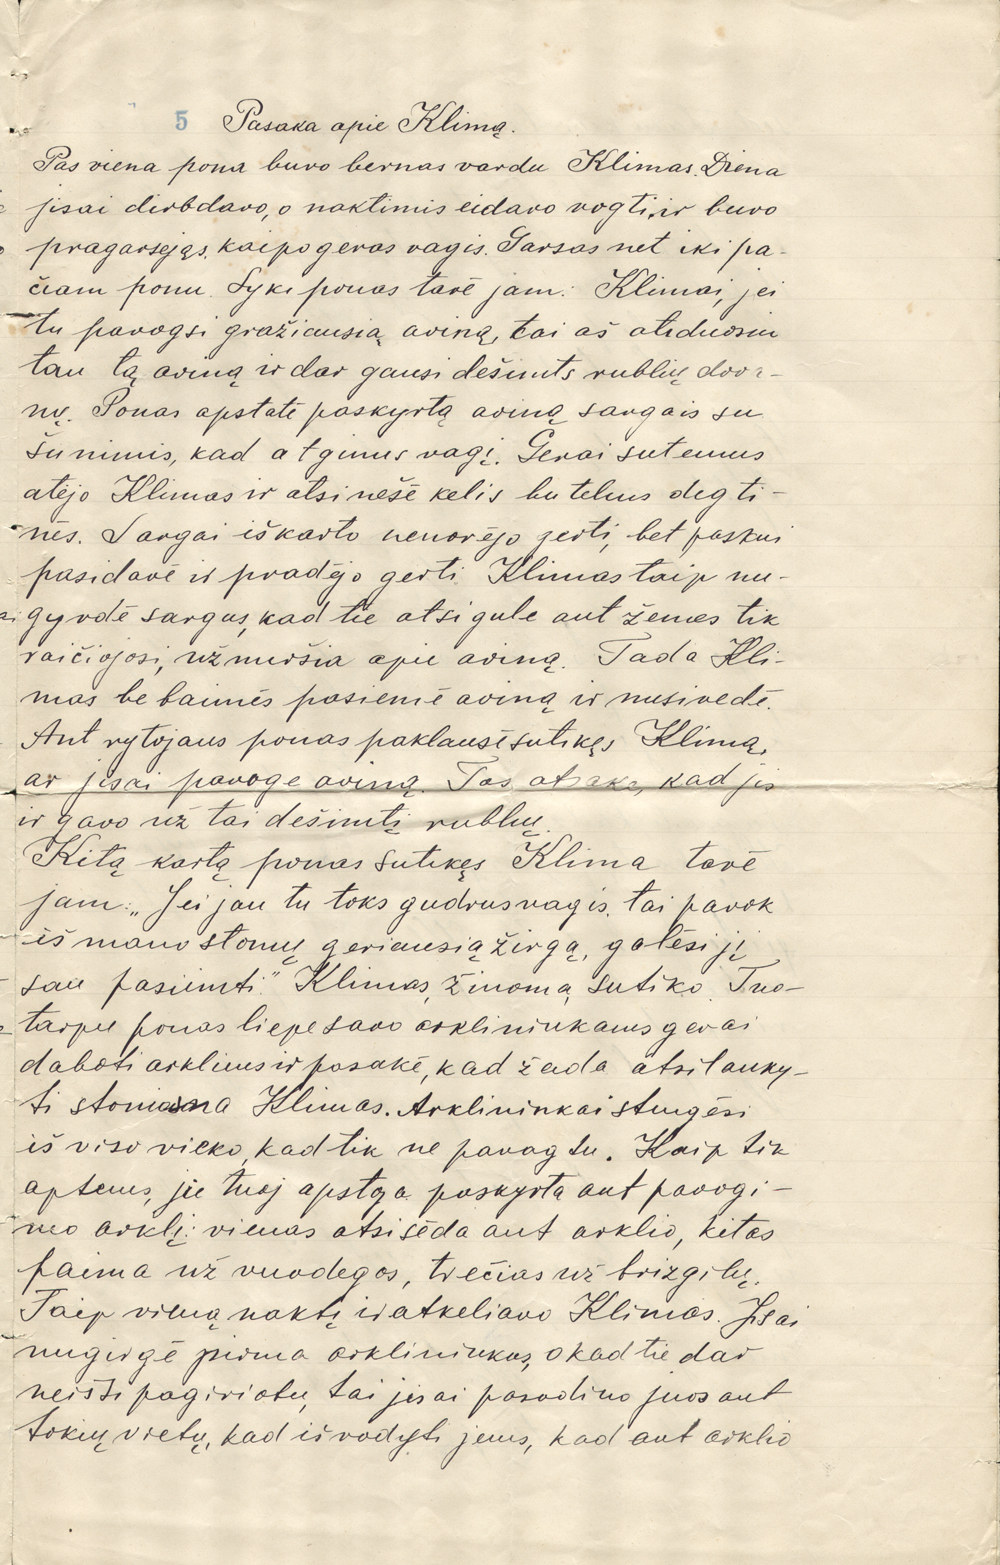 5 Pasaka apie Klimą.
Pas viena pona buvo bernas vardu Klimas. Diena
jisai dirbdavo, o naktimis eidavo vogti, ir buvo
pragarsėjęs, kaipo geras vagis. Garsas net iki pa-
čiam ponu. Syki ponas tarė jam: Klimai, jei
tu pavogsi gražiausią aviną, tai aš atiduosiu
tau tą aviną ir dar gausi dešimts rublių dova-
nų. Ponas apstatė paskyrtą aviną sargais su
šunimis, kad atginus vagį. Gerai sutemus
atėjo Klimas ir atsinešė kelis butelius degti-
nės. Sargai iškarto nenorėjo gerti, bet paskui
pasidavė ir pradėjo gerti. Klimas taip nu-
gyrdė sargus, kad tie atsigule ant žemės tik
raičiojosi, užmuršia apie aviną. Tada Kli-
mas be baimės pasiemė aviną ir nusivedė.
Ant rytojaus ponas paklausė sutikęs Klimą,
ar jisai pavoge aviną. Tas atsake, kad jis
ir gavo už tai dešimtį rublių.
Kitą kartą ponas sutikęs Klima tarė
jam: „Jei jau tu toks gudrus vagis, tai pavok
iš mano stonių geriausią žirgą, galėsi jį
sau pasiimti." Klimas, žinoma, sutiko. Tuo-
tarpu ponas liepe savo arklininkams gerai
daboti arklius ir pasakė, kad žada atsilanky-
ti Klimas. Arklininkai stengėsi
iš viso vieko, kad tik ne pavogtu. Kaip tik
aptems, jie tuoj apstoja paskyrta ant pavogi-
mo arklį: vienas atsisėda ant arklio, kitas
paima už vuodegos, trečias už brizgilų.
Taip vieną naktį ir atkeliavo Klimas. Jisai
nugirgė pirma arklininkus, o kad tie dar
neišsipagiriotu, tai jisai pasodino juos ant
tokių vietų, kad išrodyti jems, kad ant arklio